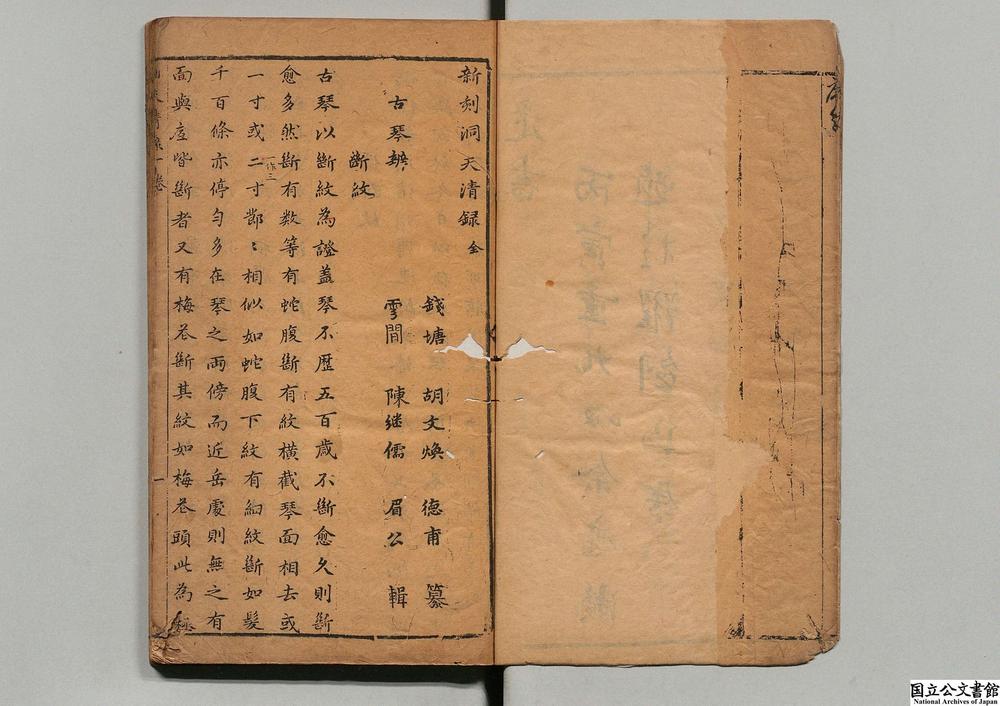 新刻洞天清録 全
錢塘 胡文煥 德甫 纂
古琴辨 雲間 陳継儒 眉公 輯
斷紋
古琴以斷紋為證盖琴不歷五百歲不斷愈久則斷
愈多然斷有数等有蛇腹斷有紋横截琴面相去或
一寸或二寸
一作三
節〻相似如蛇腹下紋有細紋斷如髮
千百條亦停勻多在琴之両傍而近岳處則無之有
面與底皆斷者又有梅花斷其紋如梅花頭此為極
清录一卷
一
国立公文書館
National Archives of Japan